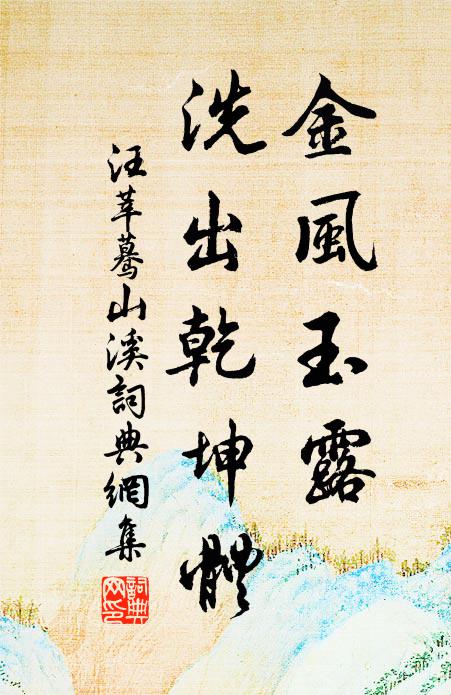 金風玉露
洗出乾坤體
汪莘驀山溪詞典網集
詞典網印